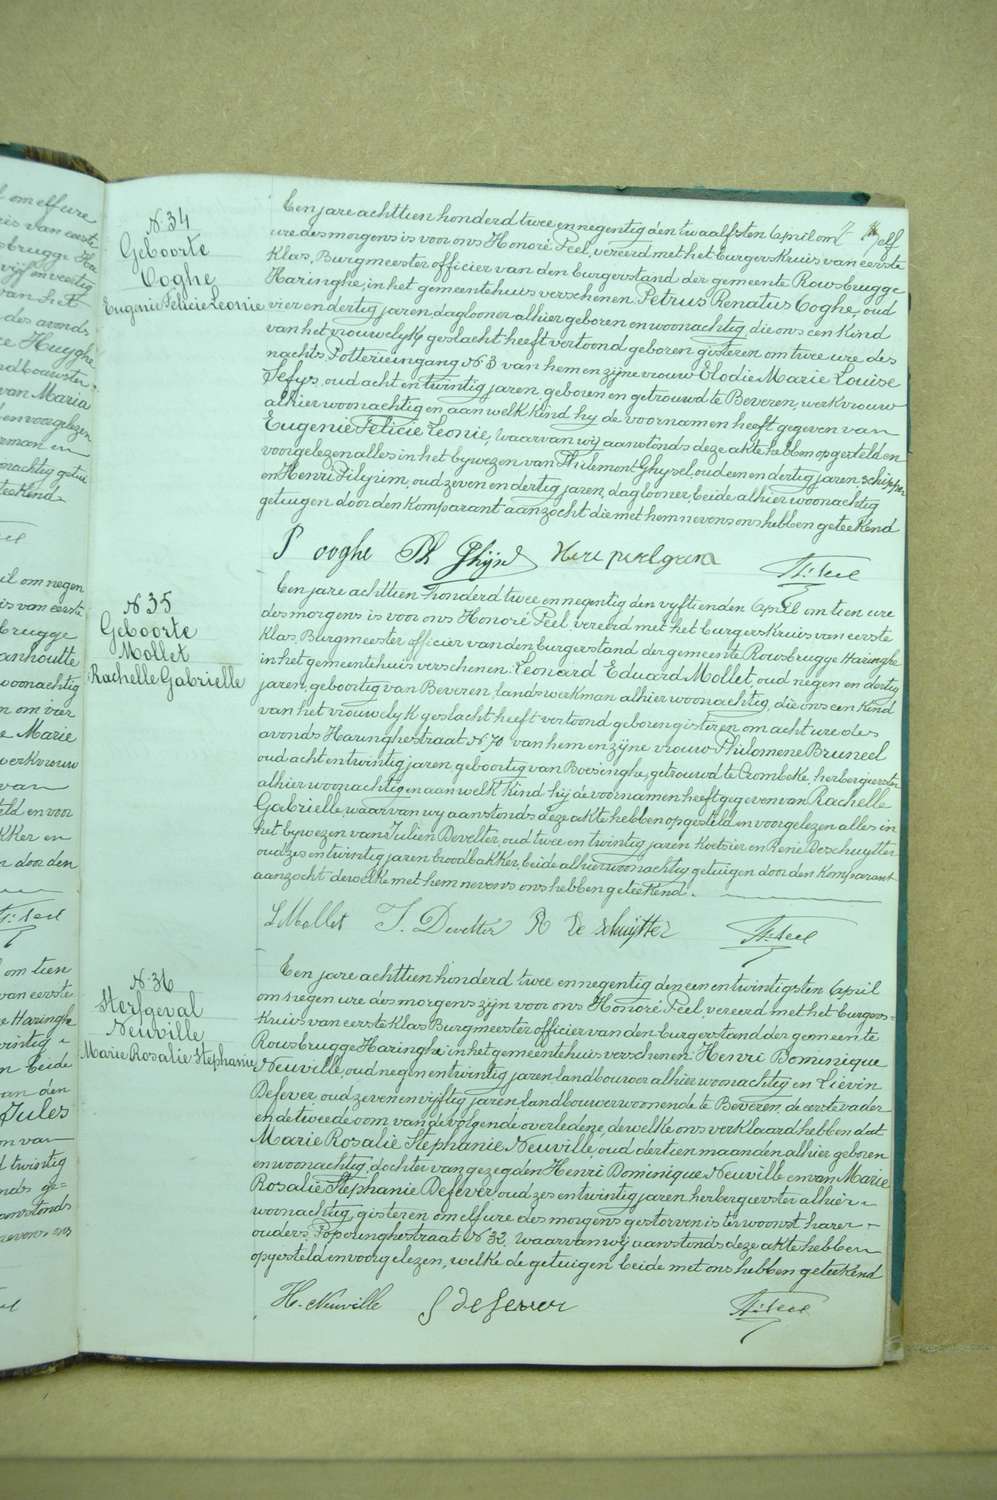 N. 34
Geboorte
Coghe
Eugenie Felicie Leonie
Een jare achttien honderd twee en negentig den twaalfsten April om elf
ure des morgens is voor ons Honoré Peel, vereerd met het burgerskruis van eerste
klas, Burgmeester officier van den burgerstand der gemeente Rousbrugge
Haringhe, in het gemeentehuis verschenen Petrus Renatus Coghe, oud
vier en dertig jaren daglooner alhier geboren en woonachtig, die ons een kind
van het vrouwelijk geslacht heeft vertoond geboren gisteren om twee ure des
nachts Potterieingang N. 3 van hem en zijne vrouw Elodie Marie Louise
Sefys, oud acht en twintig jaren, geboren en getrouwd te Beveren, werkvrouw
alhier woonachtig en aan welk kind hij de voornamen heeft gegeven van
Eugenie Felicie Leonie, waarvan wij aanstonds deze akte hebben opgesteld en
voorgelezen alles in het bywezen van Philemont Ghysel, oud een en dertig jaren, schipper
en Henri Pilgrim, oud zeven en dertig jaren, daglooner, beide alhier woonachtig
getuigen door den komparant aanzocht die met hem nevens ons hebben geteekend
P ooghe Ph Ghijsel Heri
H: Peel
N. 35
Geboorte
Mollet
Rachelle Gabrielle
Een jare achttien honderd twee en negentig den vyftienden April om tien ure
des morgens is voor ons Honoré Peel, vereerd met het burgerskruis van eerste
klas, Burgmeester officier van den burgerstand der gemeente Rousbrugge Haringhe
in het gemeentehuis verschenen Leonard Eduard Mollet, oud negen en dertig
jaren, geboortig van Beveren, landswerkman alhier woonachtig, die ons een kind
van het vrouwelyk geslacht heeft vertoond geboren gisteren om acht ure des
avonds Haringhestraat N. 70 van hem en zyne vrouw Philomene Bruneel
oud acht en twintig jaren geboortig van Boesinghe, getrouwd te Crombeke, herbergierster
alhier woonachtig en aan welk kind hij de voornamen heeft gegeven van Rachelle
Gabrielle, waarvan wij aanstonds deze akte hebben opgesteld en voorgelezen alles in
het bywezen van Julien Develter, oud twee en twintig jaren koetsier en René Deschuytter
oud zes en twintig jaren broodbakker, beide alhier woonachtig getuigen door den komparant
aanzocht derwelke met hem nevens ons hebben geteekend.
L Mollet J. Develter R De Schuytter H: Peel
N. 36
Sterfgeval
Neuville
Marie Rosalie Stephanie
Een jare achttien honderd twee en negentig den een en twintigsten April
om negen ure des morgens zijn voor ons Honoré Peel, vereerd met het burgers=
kruis van eerste klas Burgmeester officier van den burgerstand der gemeente
Rousbrugge Haringhe in het gemeentehuis verschenen Henri Dominique
Neuville, oud negen en twintig jaren landbouwer alhier woonachtig en Lievin
Defever oud zeven en vijftig jaren, landbouwer woonende te Beveren, de eerste vader
en de tweede oom van de volgende overledene, dewelke ons verklaard hebben dat
Marie Rosalie Stephanie Neuville, oud dertien maanden alhier geboren
en woonachtig, dochter van gezegden Henri Dominique Neuville en van Marie
Rosalie Stephanie Defever, oud zes en twintig jaren herbergierster alhier
woonachtig, gisteren om elf ure des morgens gestorven is ter woonst harer
ouders, Poperinghestraat N. 32. Waarvan wij aanstonds deze akte hebben
opgesteld en voorgelezen, welke de getuigen beide met ons hebben geteekend
H. Neuville L defever H: Peel